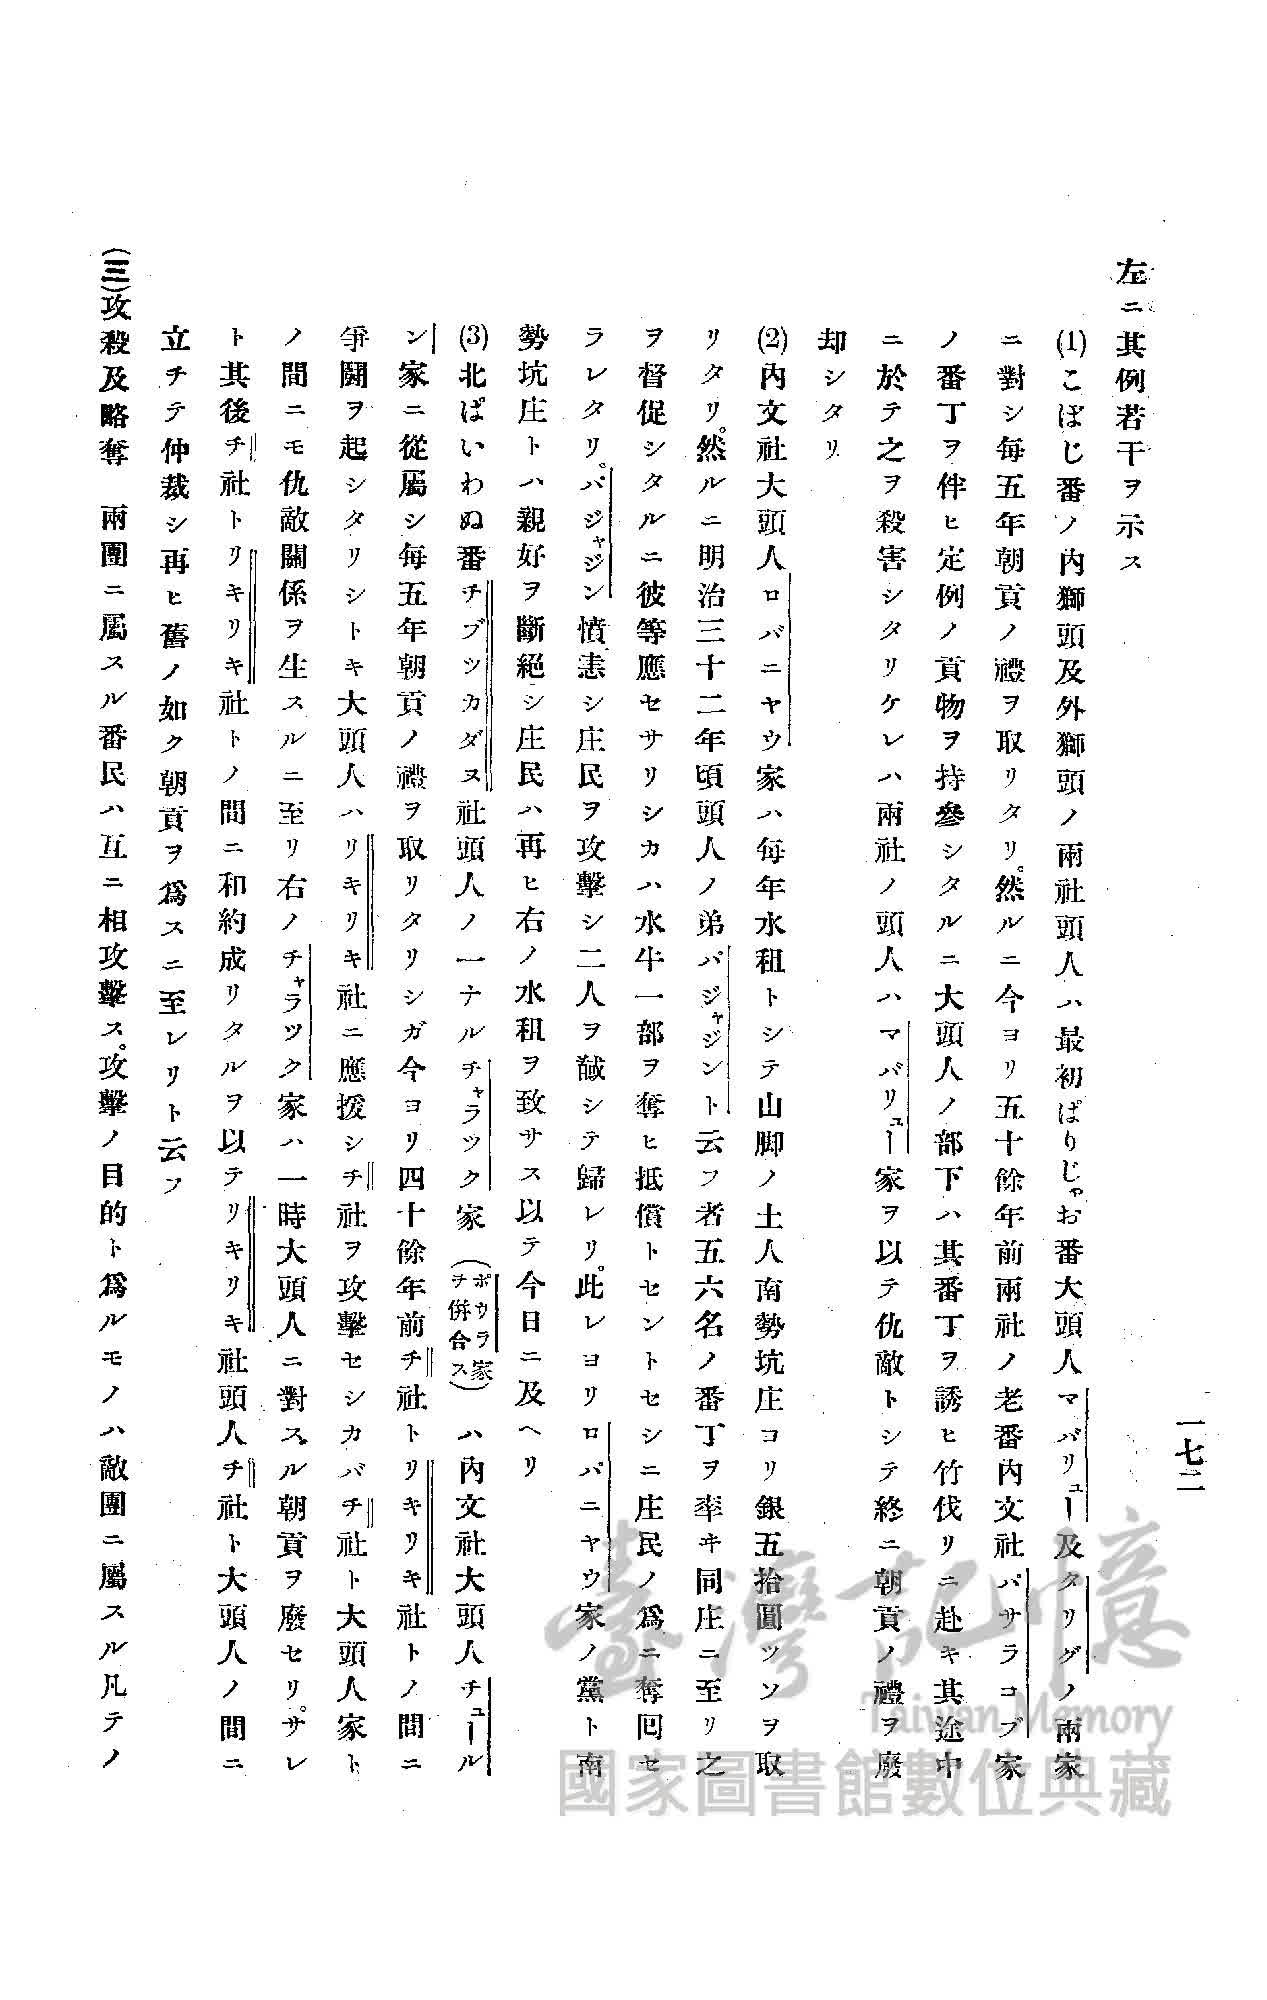 一七二
左ニ其例若干ヲ示ス
(1)こぼじ番ノ內獅頭及外獅頭ノ兩社頭人ハ最初ぱりじゃお番大頭人マバリュー及タリグノ兩家
ニ對シ每五年朝貢ノ禮ヲ取リタリ。然ルニ今ヨリ五十餘年前兩社ノ老番內文社パサラコブ家
ノ番丁ヲ伴ヒ定例ノ貢物ヲ持參シタルニ大頭人ノ部下ハ其番丁ヲ誘ヒ竹伐リニ赴キ其途中
ニ於テ之ヲ殺害シタリケレハ兩社ノ頭人ハマバリュー家ヲ以テ仇敵トシテ終ニ朝貢ノ禮ヲ廢
却シタリ
(2)內文社大頭人ロバニヤウ家ハ每年水租トシテ山脚ノ土人南勢坑庄ヨリ銀五拾圓ツヽヲ取
リタリ。然ルニ明治三十二年頃頭人ノ弟バジャジント云フ者五六名ノ番丁ヲ率ヰ同庄ニ至リ之
ヲ督促シタルニ彼等應セサリシカハ水牛一部ヲ奪ヒ抵償トセントセシニ庄民ノ爲ニ奪回セ
ラレタリ。バジャジン憤恚シ庄民ヲ攻擊シ二人ヲ馘シテ歸レリ。此レヨリロバニヤウ家ノ黨ト南
勢坑庄トハ親好ヲ斷絕シ庄民ハ再ヒ右ノ水租ヲ致サス以テ今日ニ及ヘリ
(3)北ぱいわぬ番チブツカダヌ社頭人ノ一ナルチャラツク家(ポウラ家ヲ併合ス)ハ內文社大頭人チュール
ン家ニ從屬シ每五年朝貢ノ禮ヲ取リタリシガ今ヨリ四十餘年前チ社トリキリキ社トノ間ニ
爭鬪ヲ起シタリシトキ大頭人ハリキリキ社ニ應援シチ社ヲ攻擊セシカバチ社ト大頭人家ト
ノ間ニモ仇敵關係ヲ生スルニ至リ右ノチャラツク家ハ一時大頭人ニ對スル朝貢ヲ廢セリ。サレ
ト其後チ社トリキリキ社トノ間ニ和約成リタルヲ以テリキリキ社頭人チ社ト大頭人ノ間ニ
立チテ仲裁シ再ヒ舊ノ如ク朝貢ヲ爲スニ至レリト云フ
(三)攻殺及略奪 兩團ニ屬スル番民ハ互ニ相攻擊ス。攻擊ノ目的ト爲ルモノハ敵團ニ屬スル凡テノ
臺灣記憶
Taiwan Memory
國家圖書館數位典藏